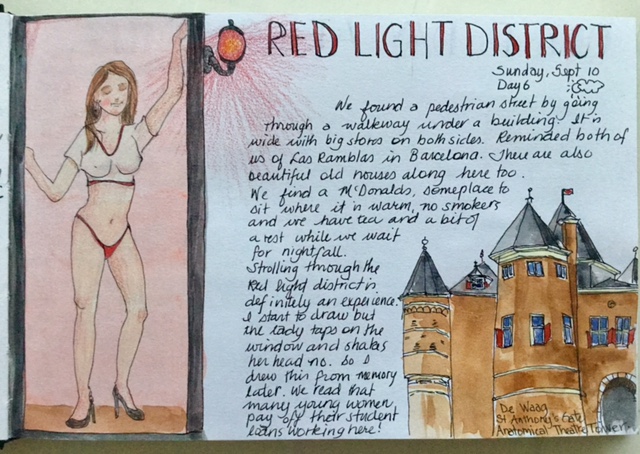 RED LIGHT DISTRICT
Sunday, Sept 10
Day 6
We found a pedestrian street by going
through a walkway under a building. It is
wide with big stores on both sides. Reminded both of
us of Las Ramblas in Barcelona. There are also
beautiful old houses along here too.
We find a McDonalds, someplace to
sit where it is warm, no smokers
and we have tea and a bit of
a rest while we wait
for nightfall.
Strolling through the
Red light district is
definitely an experience.
I start to draw but
the lady taps on the
window and shakes
her head no. So I
drew this from memory
later. We read that
many young women
pay off their student
loans working here!
De Waag
St Anthony's Gate
Anatomical Theatre Tower